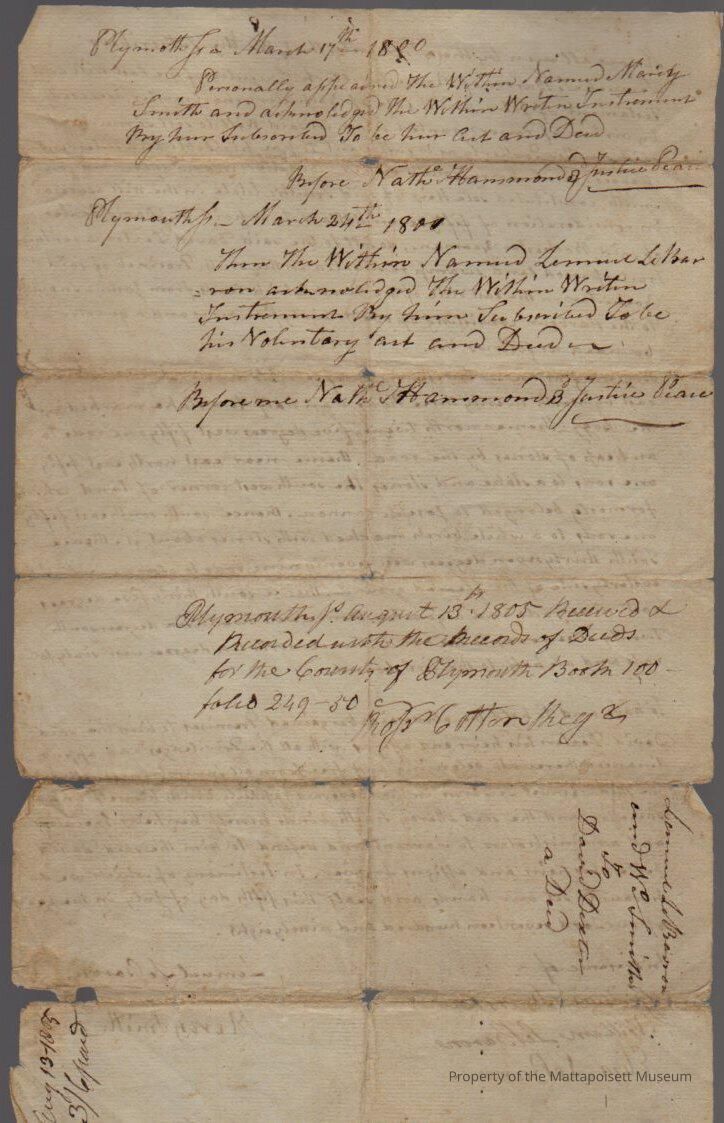 Plymoth Ss March 17th 1800
Personally appeared The Within Named Marcy
Smith and acknoledged the Within Writen Instrement
By hur Subscribed To be hur Act and Deed
Before Nathl Hammond Justice Peace
Plymouth Ss March 24th 1800
Then The Within Named Lemuel LeBar
=ron acknoledged The Within Writen
Instrement By him Subscribed To be
his Volontary act and Deed
Before me Nathl Hammond Justice Peace
Plymouth Ss August 13th 1805 Received &
Recorded with the Records of Deeds
for the County of Plymouth Book 100
folio 249-50
Rossr Cotton Regr
Lemuel LeBaron
and Wo Smith
To
David Dexter
a Deed
Aug 13 1805
Property of the Mattapoisett Museum